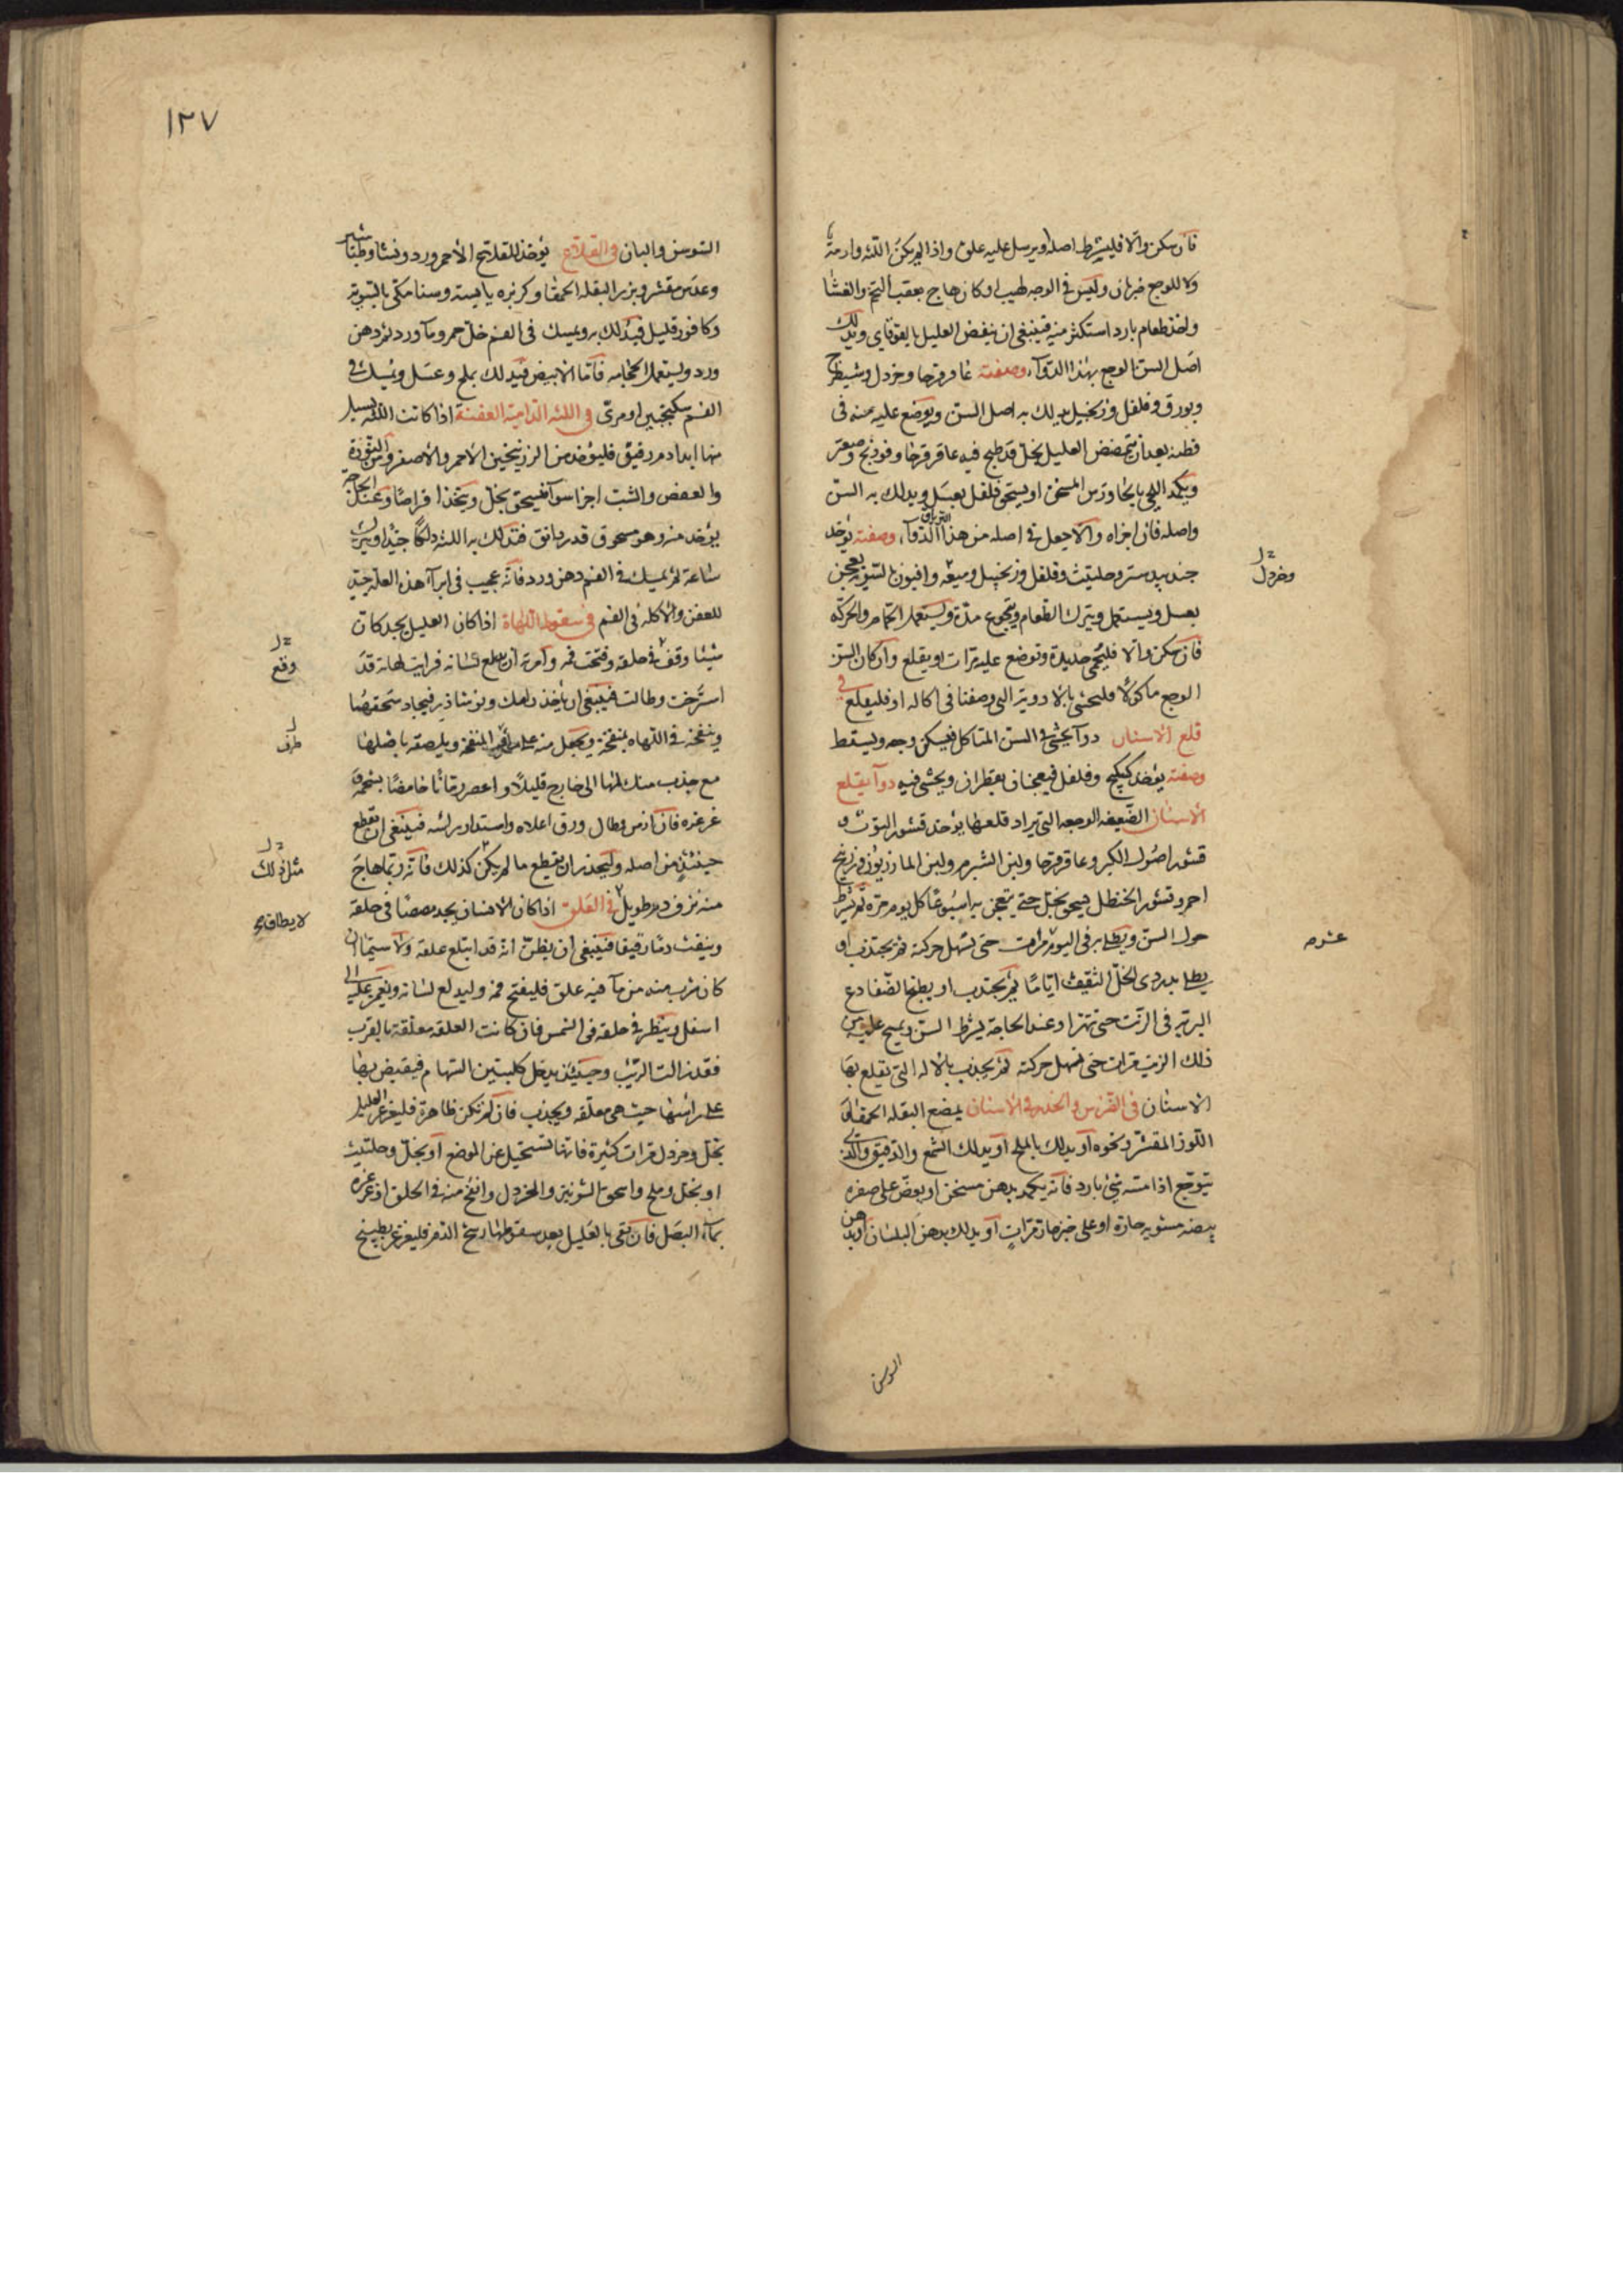 فان سكن والا فليشرط اصله او يرسل عليه علق واذا لم يكن اللثه وارمة
ولا للوجع ضربان وليس فى الوجه لهيب او كان هاج بعقب التخم والغشا
واخذ طعام بارد استكثر منه فينبغى ان ينفض العليل بايقوقاى ويدلك
اصل السن الوجع بهذا الدوآء وصفته عاقرقرحا وخردل وشيطرج
وبورق وفلفل وزنجبيل يدلك به اصل السن ويوضع عليه منه فى
قطنه بعد ان يتمضمض العليل بخل قد طبخ فيه عاقرقرحا وفوذنج وصعتر
ويكمد اللحى بالجاورس المسخن او يسحق فلفل بعسل ويدلك به السن
واصله فان اجزاه والا جعل فى اصله من هذا الدوآء وصفته يؤخذ
الترياق
جندبيدستر وحلتيت وفلفل وزنجبيل وميعه وافيون بالسويه يعجن
وخردل
بعسل ويستعمل ويترك الطعام ويتجوع مدة ويستعمل الحمام والحركه
فان سكن والا فليحمى حديدة وتوضع عليه مرات او يقلع وان كان السن
الوجع ماكولا فليحشى بالادوية التى وصفنا فى اكاله او فليقلع فى
قلع الاسنان دوآ يحشى فى السن المتاكل فيسكن وجعه ويسقط
وصفته يؤخذ كبيكج وفلفل فيعجنان بقطران ويحشى فيه دوآ يقلع
الاسنان الضعيفه الوجعه التى يراد قلعها يؤخذ قشور التوث و
قشور اصول الكبر وعاقرقرحا ولبن الشبرم ولبن المازريون وزرنيخ
احمر وقشور الحنظل فيسحق بخل حتى يتعجن به اسبوعا كل يوم مرة ثم يشرط
حول السن ويطلى به فى اليوم مرات حتى تسهل حركته ثم يجتذب او
عشر مر
يطلى بدردى الخل الثقيف اياما ثم يجتذب او يطبخ الضفادع
البريه فى الزيت حتى تهرا وعند الحاجة يشرط السن ويمسح عليه من
ذلك الزيت مرات حتى تسهل حركته ثم يجذب بالاله التى يقلع بها
الاسنان فى الضرس والخدر فى الاسنان يمضغ البقله الحمقا او
اللوز المقشر ونحوه او يدلك بالملح او يدلك الشمع والدقيق والذى
يتوجع اذا مسه شئ بارد فانه يكمد بدهن مسخن او يعض على صفره
بيضه مشويه حارة او على خبز حار مرات او يدلك بدهن البلسان او بدهن
السوسن
١٢٧
السوسن والبان فى القلاع يؤخذ للقلاع الاحمر ورد ونشا وطباشير
وعدس مقشر وبزر البقله الحمقا وكزبره يابسه وسنا مكى بالسوية
وكافور قليل فيدلك به ويمسك فى الفم خل خمر ومآ ورد ثم دهن
ورد ويستعمل الحجامه فاما الابيض فيدلك بملح وعسل ويمسك فى
الفم سكنجبين او مرى فى اللثه الدامية العفنة اذا كانت اللثه يسيل
منها ابدا دم رقيق فليؤخذ من الزرنيخين الاحمر والاصفر ومن النورة
والعفص والشب اجزا سوآ فيسحق بخل ويتخذ اقراصا وعند الحاجه
يؤخذ منه وهو مسحوق قدر دانق فتدلك به اللثه دلكا جيدا ويترك
ساعة ثم يمسك فى الفم دهن ورد فانه عجيب فى ابرآ هذه العله جيد
للعفن والاكله فى الفم فى سقوط اللهاة اذا كان العليل يجد كان
شيئا وقف فى حلقه وفتحت فمه وامرته ان يدلع لسانه فرايت لهاته قد
وقع
استرخت وطالت فينبغى ان ياخذ دلمك ونوشاذر فيجاد سحقهما
وينفخه فى اللهاه بمنفخة ويجعل منه على طرف المنفخة ويلصقه باصلها
طرف
مع جذب منك لها الى خارج قليلا واعصر رمانا حامضا بشحمه
غرغره فان ازمن وطال ورق اعلاه واستدار راسه فينبغى ان يقطع
حينئذ من اصله وليحذر ان يقطع ما لم يكن كذلك فانه ربما هاج
مثل ذلك
منه نزف دم طويل فى العلق اذا كان الانسان يجد مصصا فى حلقه
لا يطاق
وينفث دما رقيقا فينبغى ان يظن انه قد ابتلع علقه ولا سيما ان
كان شرب منه من مآ فيه علق فليفتح فمه وليدلع لسانه ويغمز عليه الى
اسفل وينظر فى حلقه فى الشمس فان كانت العلقه معلقه بالقرب
فقد زالت الريب وحينئذ يدخل كلبتين السهام فيقبض بها
على راسها حيث هى معلقه ويجذب فان لم تكن ظاهرة فليغرغر العليل
بخل وخردل مرات كثيرة فانها تستحيل عن الموضع او بخل وحلتيت
او بخل وملح واسحق الشونيز والخردل وانفخ منه فى الحلق او غرغره
بمآء البصل فان بقى بالعليل بعد سقوطها رشح الدم فليغرغر بطبيخ